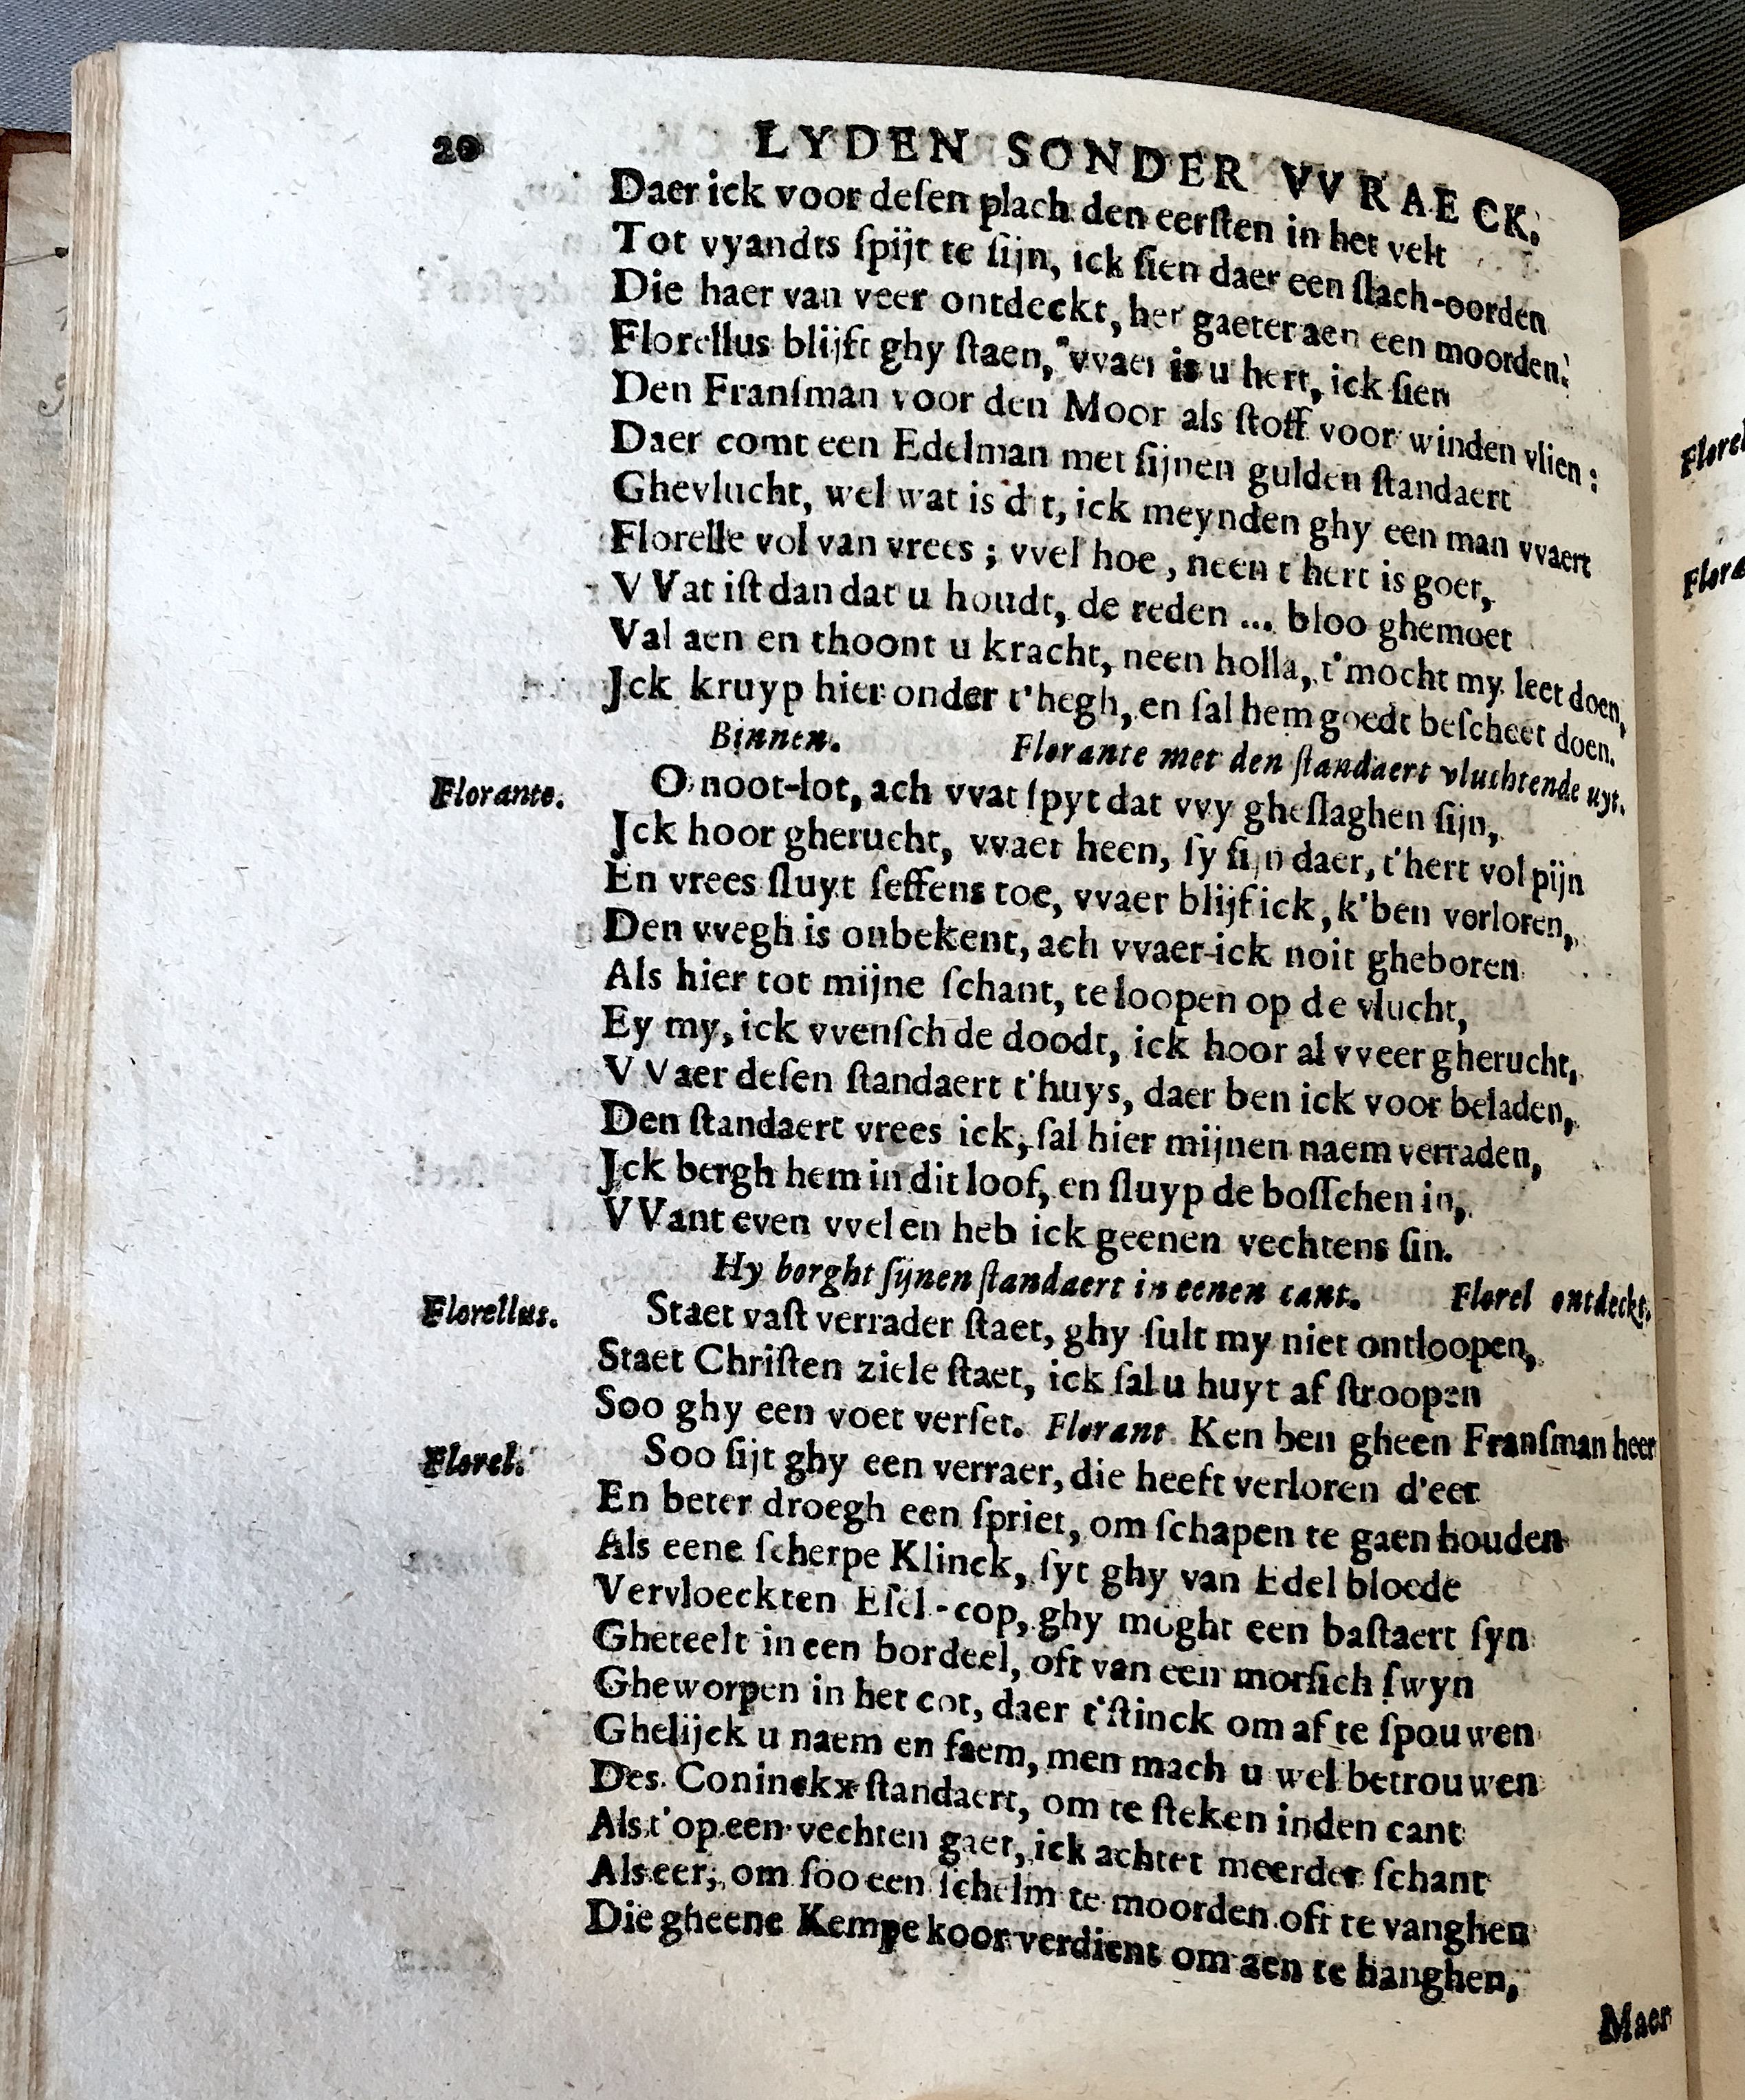 20 LYDEN SONDER VVRAECK.
Daer ick voor deſen plach den eerſten in het velt
Tot vyandts ſpijt te ſijn, ick ſien daer een ſlach-oorden
Die haer van veer ontdeckt, het gaeter aen een moorden:
Florellus blijft ghy ſtaen, vvaer is u hert, ick ſien
Den Franſman voor den Moor als ſtoff voor winden vlien;
Daer comt een Edelman met ſijnen gulden ſtandaert
Ghevlucht, wel wat is dit, ick meynden ghy een man vvaert
Florelle vol van vrees; vvel hoe, neen t'hert is goet,
VVat iſt dan dat u houdt, de reden ... bloo ghemoet
Val aen en thoont u kracht, neen holla, t'mocht my leet doen,
Jck kruyp hier onder t'hegh, en ſal hem goedt beſcheet doen.
Binnen. Florante met den ſtandaert vluchtende uyt.
Florante. O noot-lot, ach vvat ſpyt dat vvy gheſlaghen ſijn,
Jck hoor gherucht, vvaer heen, ſy ſijn daer, t'hert vol pijn
En vrees ſluyt ſeffens toe, vvaer blijf ick, k'ben verloren,
Den vvegh is onbekent, ach vvaer ick noit gheboren
Als hier tot mijne ſchant, te loopen op de vlucht,
Ey my, ick vvenſch de doodt, ick hoor al vveer gherucht,
VVaer deſen ſtandaert t'huys, daer ben ick voor beladen,
Den ſtandaert vrees ick, ſal hier mijnen naem verraden,
Jck bergh hem in dit loof, en ſluyp de boſſchen in,
VVant even vvel en heb ick geenen vechtens ſin.
Hy borght ſijnen ſtandaert in eenen cant. Florel ontdeckt.
Florellus. Staet vaſt verrader ſtaet, ghy ſult my niet ontloopen,
Staet Chriſten ziele ſtaet, ick ſal u huyt af ſtroopen
Soo ghy een voet verſet. Florant. Ken ben gheen Franſman heer
Florel. Soo ſijt ghy een verraer, die heeft verloren d'eer
En beter droegh een ſpriet, om ſchapen te gaen houden
Als eene ſcherpe Klinck, ſyt ghy van Edel bloede
Vervloeckten Eſel-cop, ghy moght een baſtaert ſyn
Gheteelt in een bordeel, oft van een morſich ſwyn
Gheworpen in het cot, daer t'ſtinck om af te ſpouwen
Ghelijck u naem en faem, men mach u wel betrouwen
Des Coninckx ſtandaert, om te ſteken inden cant
Als t'op een vechten gaet, ick achtet meerder ſchant
Als eer, om ſoo een ſchelm te moorden oft te vanghen
Die gheene Kempe koor verdient om aen te hanghen,
Maer